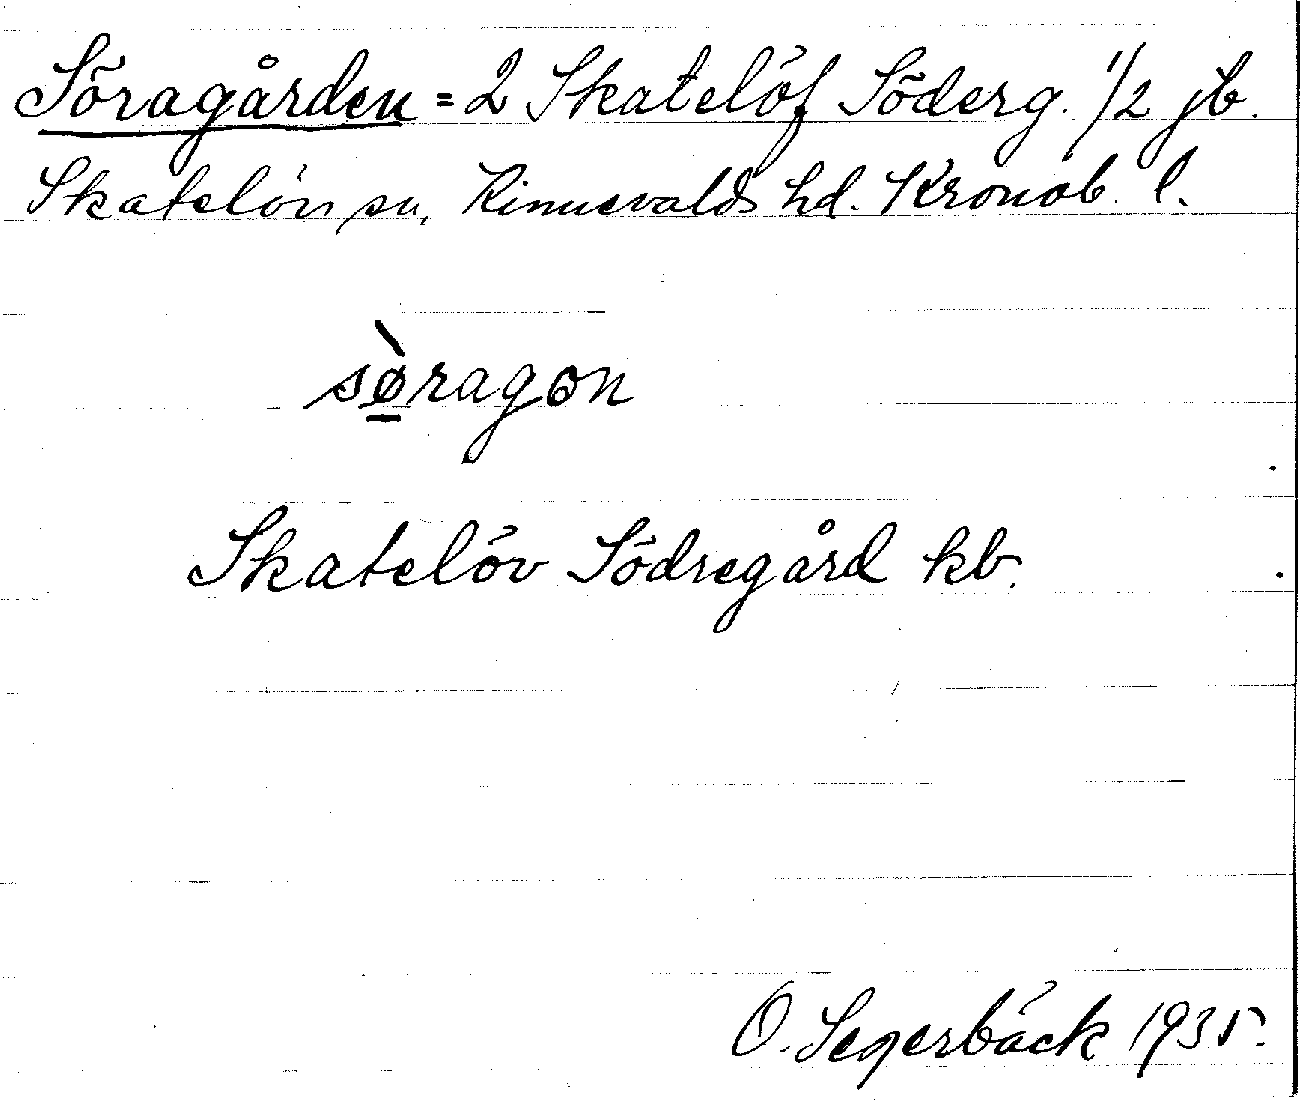 Söragården = 2 Skatelöf Söderg. 1/2 jb.
Skatelövs sn, Kinnevalds hd. Kronob. l.
sø̀ragɔn
Skatelöv Södregård kb.
O. Segerbäck 1935.